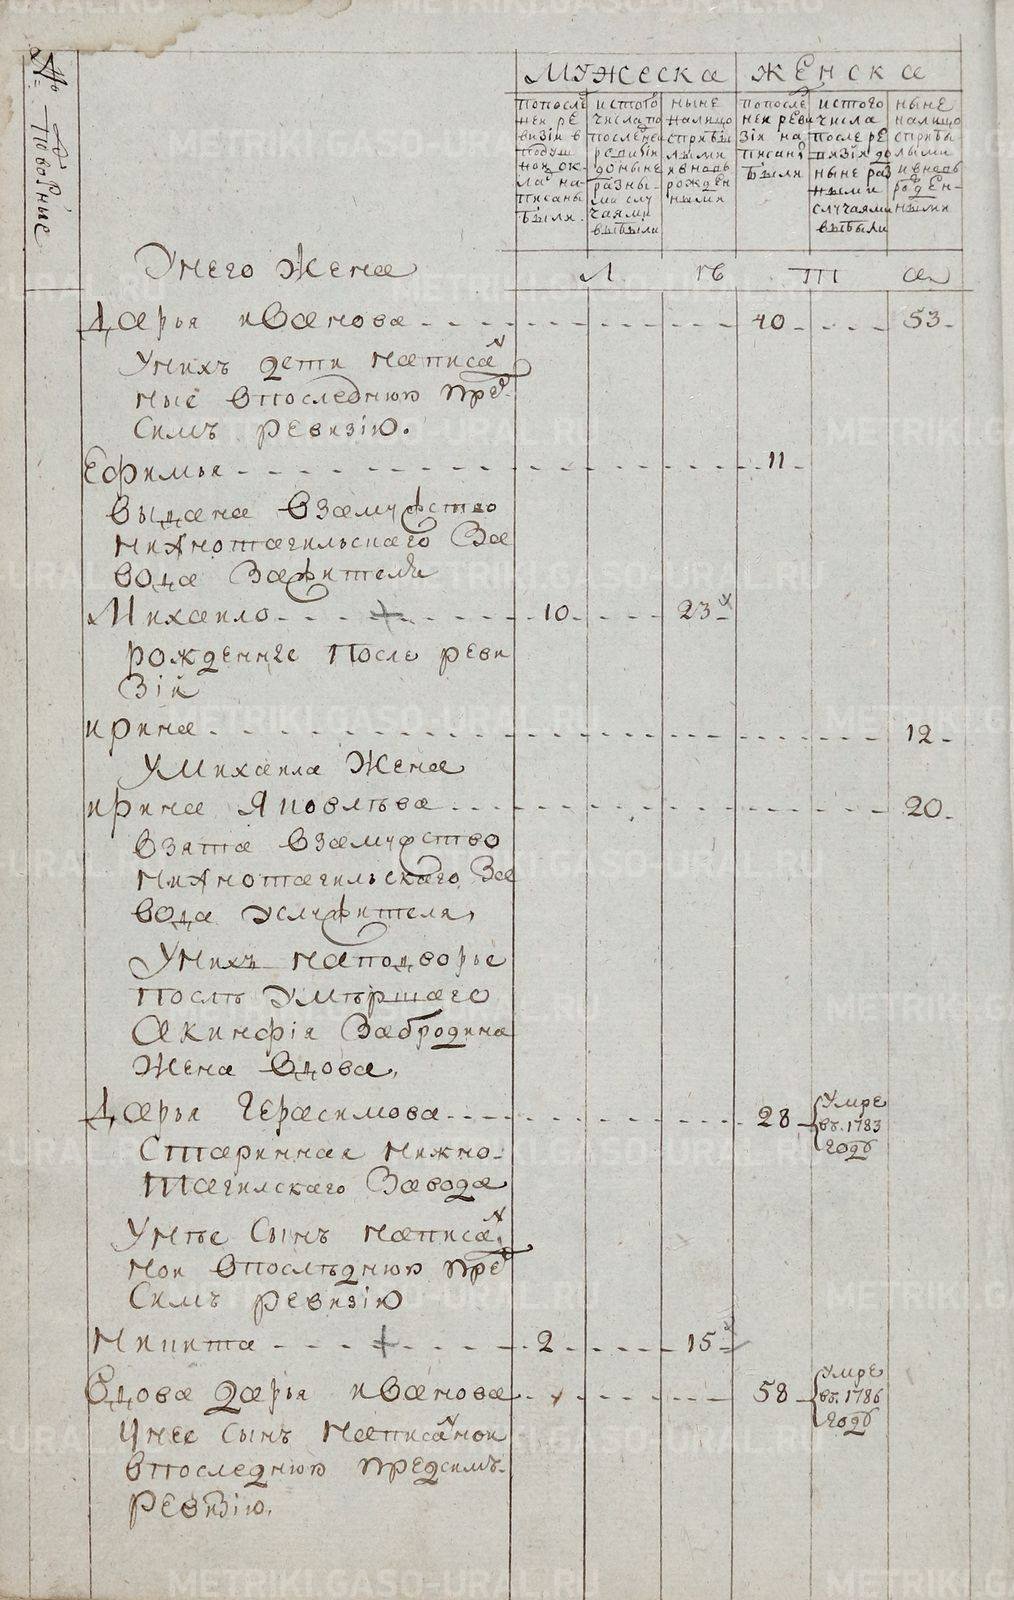 № Дворовые
МУЖЕСКА ЖЕНСКА
попосле
ней ре
визiи в
подуш
ной ок
ла на
писаны
были.
истого
числа по
после ней
ревизiи
до ныне
разны
ми слу
чаями
выбыли
ныне
налицо
сприбы
лыми
ивновь
рожден
ными
попосле
ней реви
зiи на
писаны
были
истого
числа
после ре
визiи до
ныне раз
ными
случаями
выбыли
ныне
налицо
спрбы
лыми
ивновь
рожден
ными
Унего жена
Л Ѣ Т А
Дарья иванова 40 53
Унихъ дети написан
ные впоследнюю пред
Симъ ревизiю.
Ефимья 11
выдана взамужство
нижнотагильскаго За
вода Зажителя
Михаило 10 23
рожденные после реви
Зiи
ирина 12
У Михаила Жена
ирина Яковлѣва 20
взята взамужство
нижнотагильскаго За
вода Услужителя,
Унихъ наподворье
послѣ Умѣршаго
Акинфiя Забродина
Жена вдова,
Дарья Герасимова 28 Умре
въ. 1783
годѣ
Старинная нижно
Тагилскаго Завода
Унѣе Сынъ написан
нои впослѣднюю пред
Симъ ревизiю
Никита 2 15
Вдова дарья иванова 58 Умре
въ. 1786
годѣ
Унее Сынъ написанной
впоследнюю предсимъ
Ревизiю.
METRIKI.GASO-URAL.RU